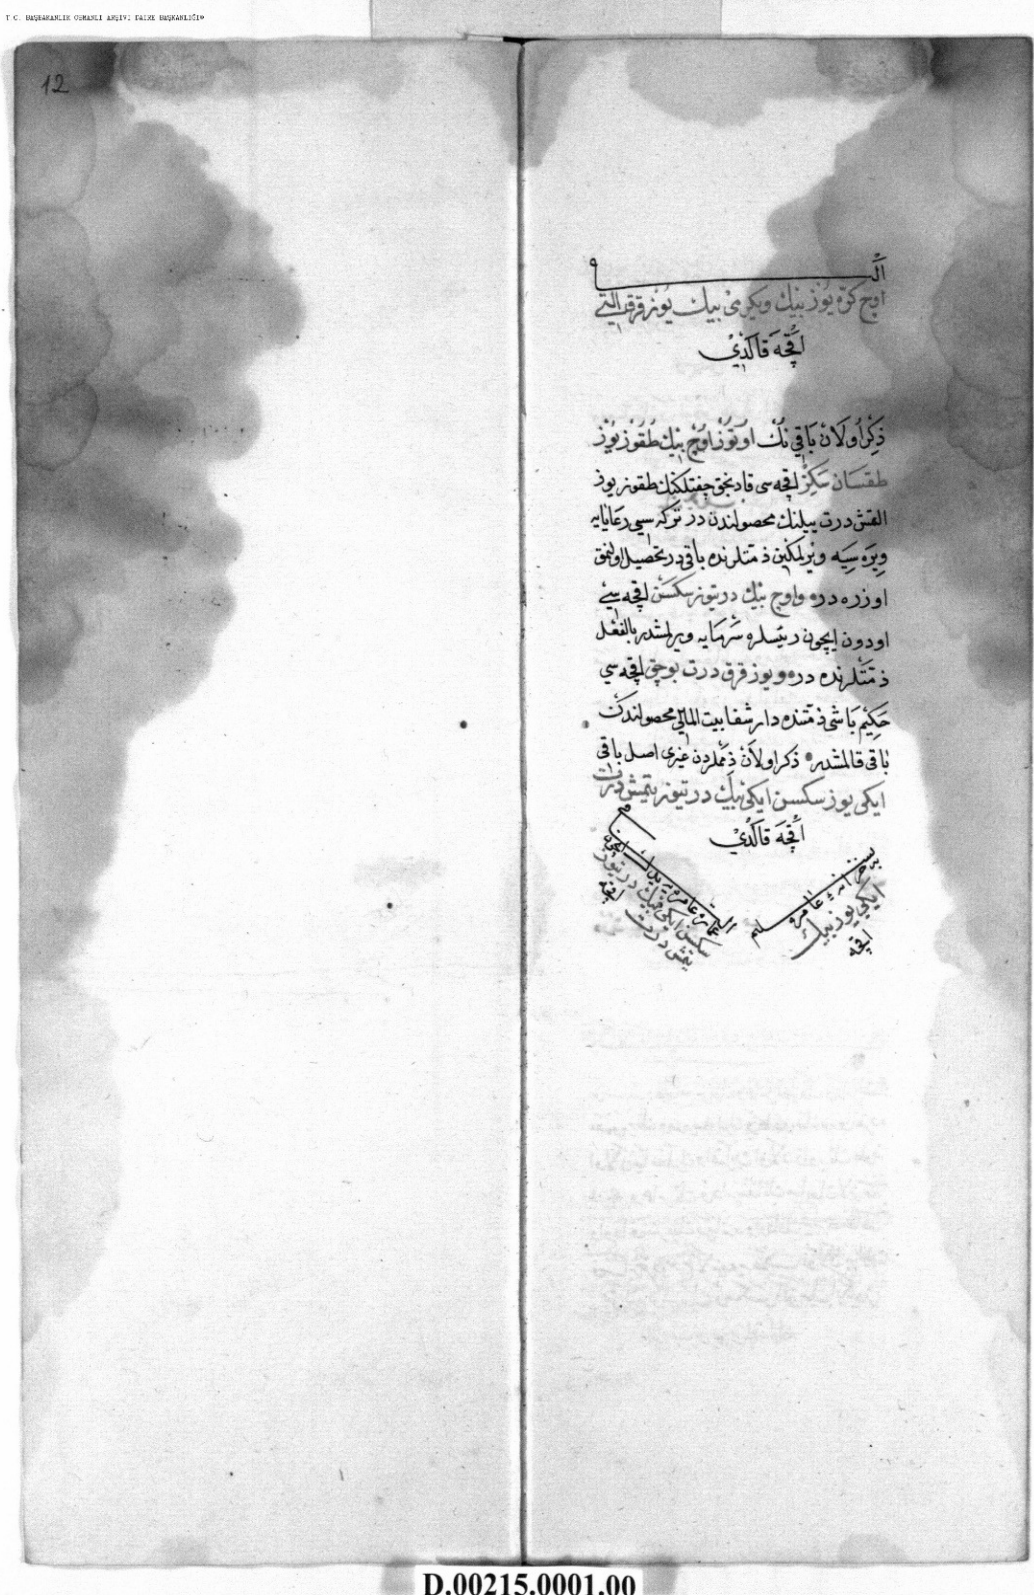 T.C. BAŞBAKANLIK OSMANLI ARŞİVİ DAİRE BAŞKANLIĞI
12
اوچ كرّه يوز بيك ويكرمى بيك يوز قرق التى
اقچه قالدى
ذكر اولان باقى نك اوتوز اوچ بيك طقوز يوز
طقسان سكز اقچه سى قاد بخق چفتلكنك طقوز يوز
التمش درت ييلنك محصولندن در تركه سيى رعايايه
ويره سيه ويرلمكين ذمتلرنده باقى در تحصيل اولنمق
اوزره در و اوچ بيك درتيوز سكسن اقچه سى
اودون ايچون رئيسلره ويرلمشدر بالفعل
ذمتلرنده در و يوز قرق درت بوچق اقچه سى
حكيم باشى ذمتنده دار شفا بيت المالى محصولندن
باقى قالمشدر ذكر اولان ذمملردن غيرى اصل باقى
ايكى يوز سكسن ايكى بيك درتيوز يتمش درت
اقچه قالدى
خزانۀ عامره
ايكى يوز بيك
اقچه
سكسن ايكى بيك درتيوز
يتمش درت اقچه
D.00215.0001.00